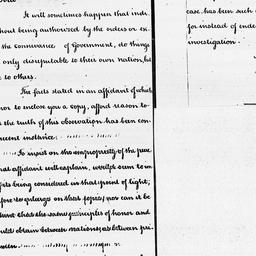 It will sometimes happen that indi
hout being authorized by the orders or ex
the connivance of Government, do things
only disreputable to their own nation, bu
to others.
The facts stated in an affidavit of which
nor to inclose you a copy, afford reason to
the truth of this observation has been con
recent instance
To insist on the impropriety of the proce
hat affidavit will explain, would seem to im
facts being considered in that point of light;
fore to enlarge on that topic; nor can it be
that the same principles of honor and
uld obtain between nations, as between pri
case has been such
for instead of ende
investigation.